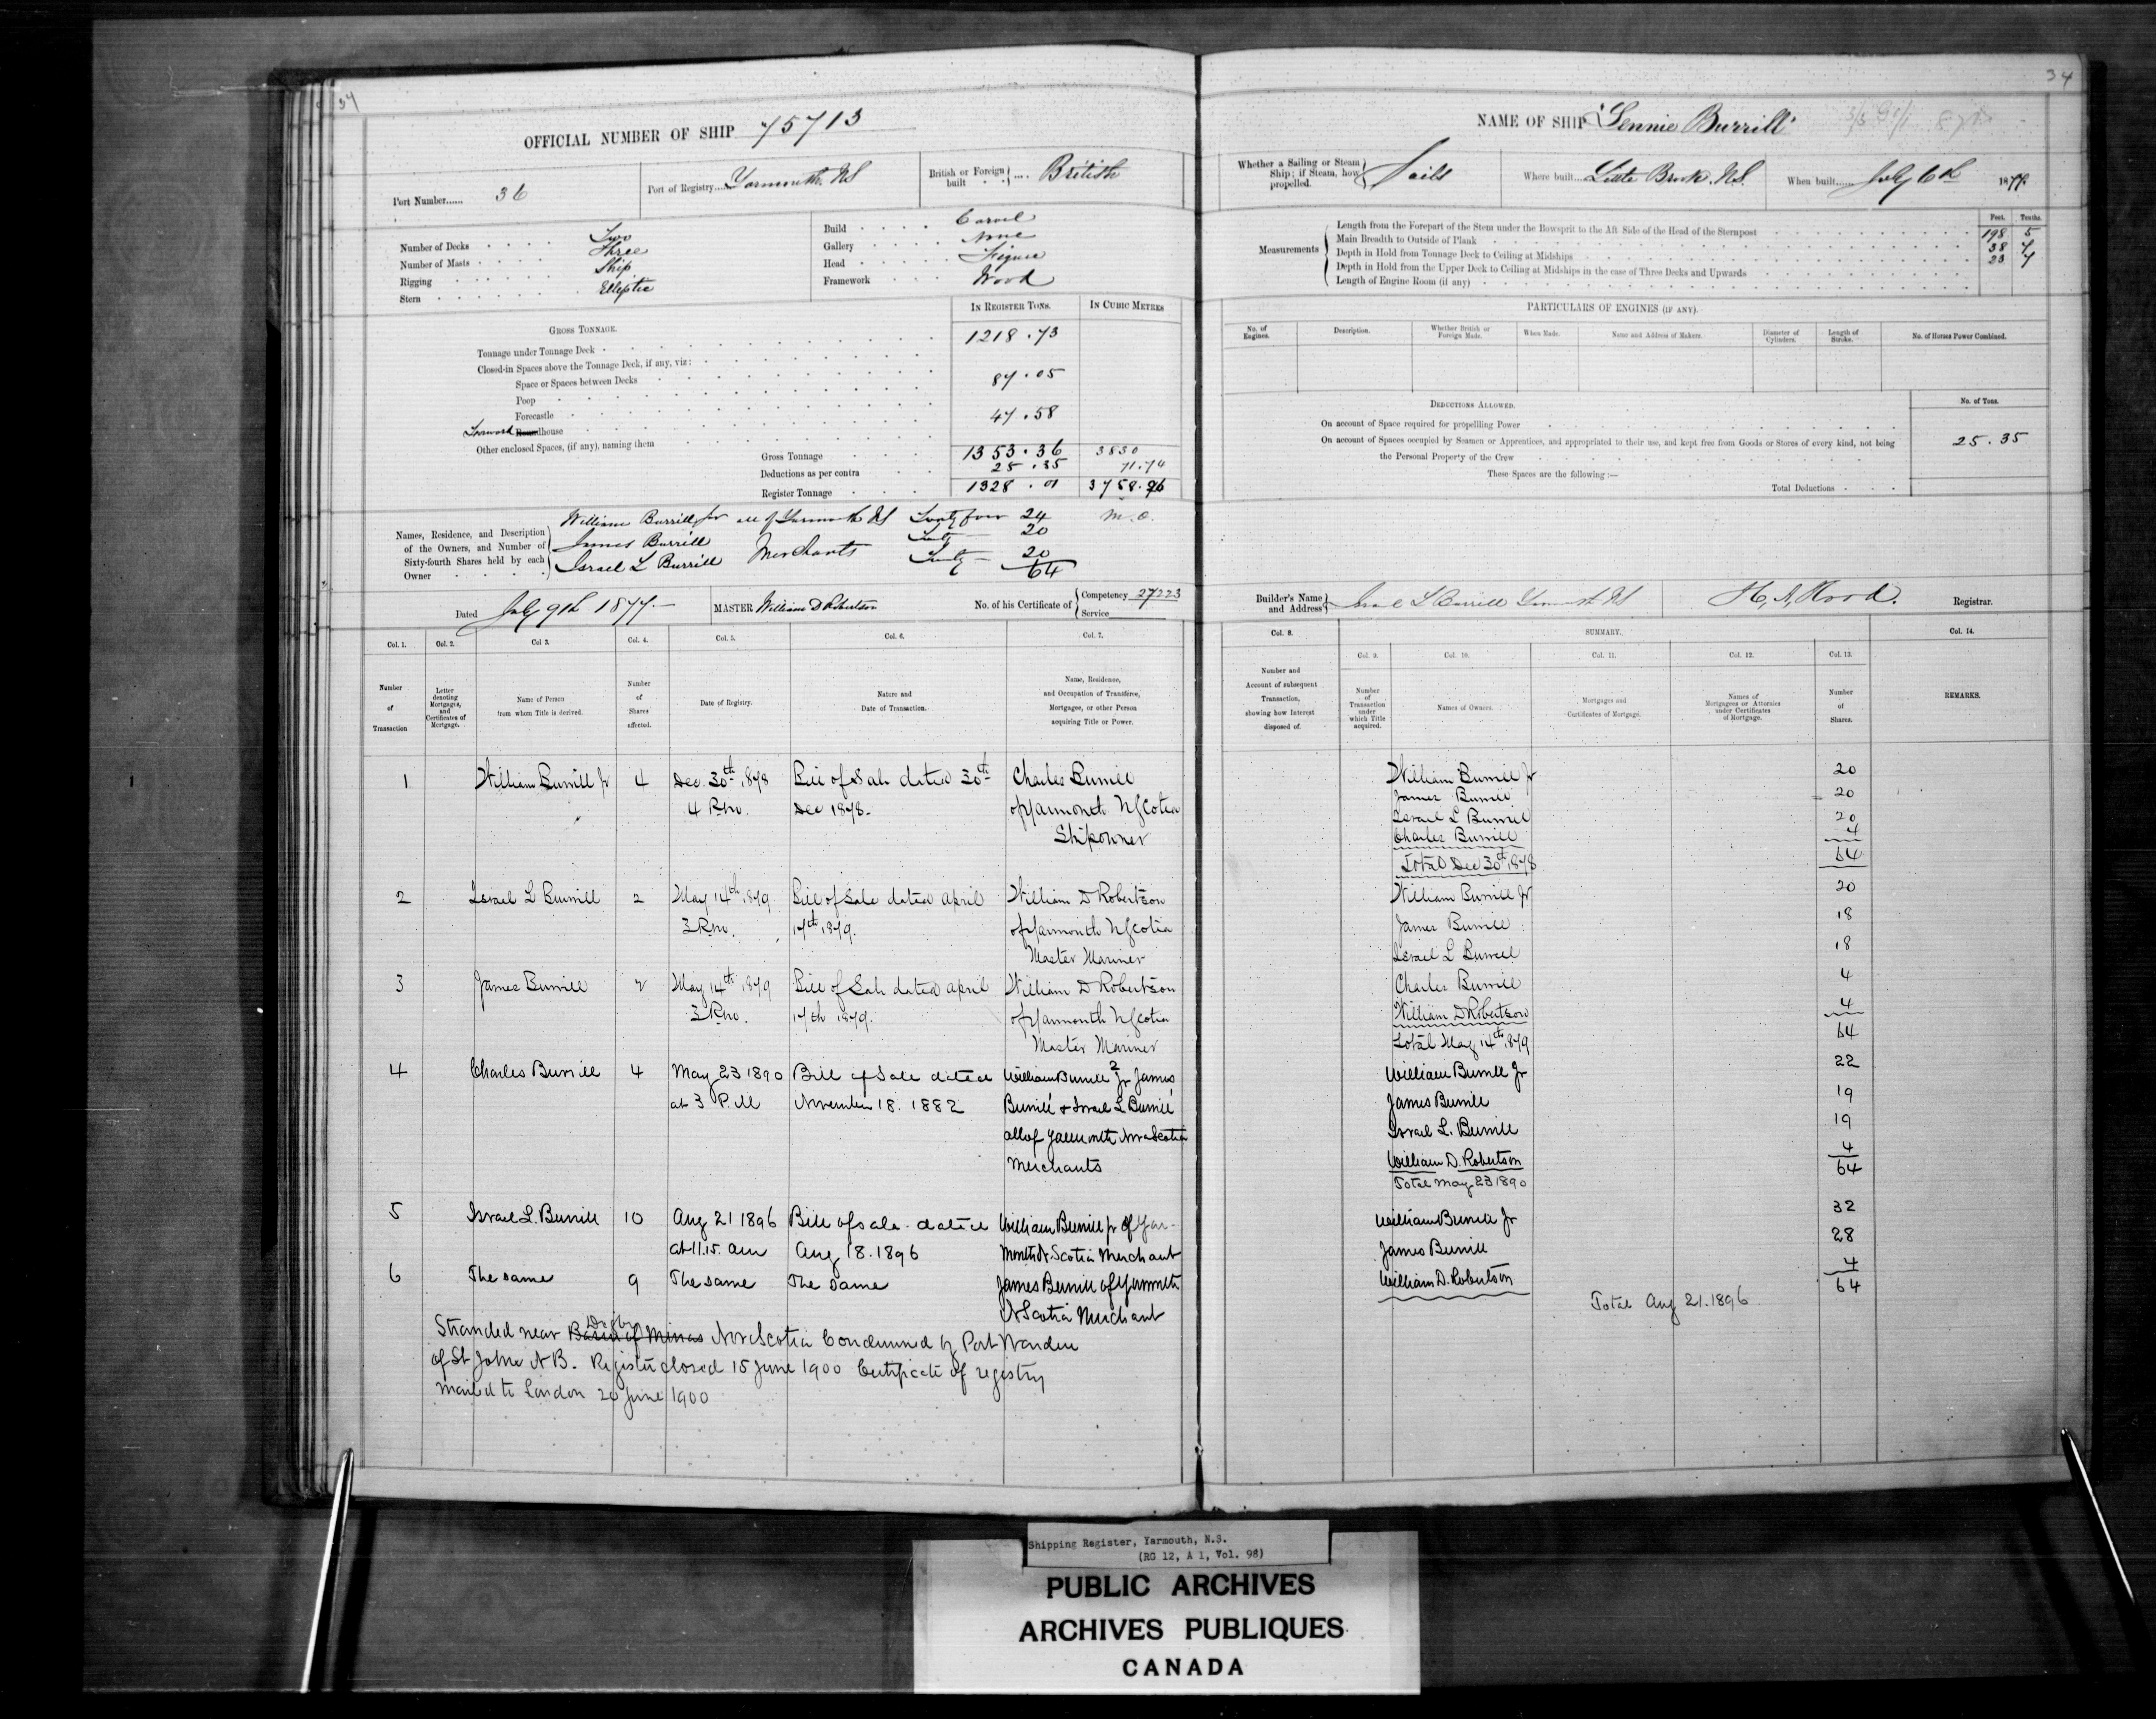 34
OFFICIAL NUMBER OF SHIP 75713
Port Number...... 36
Port of Registry.... Yarmouth, NS
British or Foreign built .... British
Number of Decks Two
Number of Masts Three
Rigging Ship
Stern Elliptic
Build Carvel
Gallery None
Head Figure
Framework Wood
IN REGISTER TONS. IN CUBIC METRES
GROSS TONNAGE.
Tonnage under Tonnage Deck 1218.73
Closed-in Spaces above the Tonnage Deck, if any, viz:
Space or Spaces between Decks
Poop 87.05
Forecastle
Forward house 47.58
Other enclosed Spaces, (if any), naming them
Gross Tonnage 1353.36 3830
Deductions as per contra 25.35 71.74
Register Tonnage 1328.01 3758.26
Names, Residence, and Description of the Owners, and Number of Sixty-fourth Shares held by each Owner
William Burrill Jr all of Yarmouth NS Twenty four 24 M.O.
James Burrill Twenty 20
Israel L Burrill Merchants Twenty 20
64
Dated July 9th 1877
MASTER William D Robertson
No. of his Certificate of Competency 27223
Service
Col. 1. Col. 2. Col 3. Col. 4. Col. 5. Col. 6. Col. 7.
Number of Transaction
Letter denoting Mortgages, and Certificates of Mortgage.
Name of Person from whom Title is derived.
Number of Shares affected.
Date of Registry.
Nature and Date of Transaction.
Name, Residence, and Occupation of Transferee, Mortgagee, or other Person acquiring Title or Power.
1 William Burrill Jr 4 Dec 30th 1878 Bill of Sale dated 30th Charles Burrill
4 P.m. Dec 1878. of Yarmouth N Scotia
Shipowner
2 Israel L Burrill 2 May 14th 1879 Bill of Sale dated April William D Robertson
3 P.m. 17th 1879. of Yarmouth N Scotia
Master Mariner
3 James Burrill 2 May 14th 1879 Bill of Sale dated April William D Robertson
3 P.m. 17th 1879. of Yarmouth N Scotia
Master Mariner
4 Charles Burrill 4 May 23 1890 Bill of Sale dated William Burrill 2 Jr James
at 3 P.M November 18. 1882 Burrill & Israel L Burrill
all of Yarmouth Nova Scotia
Merchants
5 Israel L. Burrill 10 Aug 21 1896 Bill of sale dated William Burrill jr of Yar-
at 11.15. am Aug 18. 1896 mouth N. Scotia Merchant
6 The same 9 The same The same James Burrill of Yarmouth
N Scotia Merchant
Digby
Stranded near Basin of Minas Nova Scotia Condemned by Port Warden
of St John N B. Register closed 15 June 1900 Certificate of registry
mailed to London 20 June 1900
34
NAME OF SHIP "Lennie Burrill"
Whether a Sailing or Steam Ship; if Steam, how propelled. Sails
Where built.... Little Brook. N.S.
When built...... July 6th 1877
Feet. Tenths.
Measurements
Length from the Forepart of the Stem under the Bowsprit to the Aft Side of the Head of the Sternpost 198 5
Main Breadth to Outside of Plank 38 7
Depth in Hold from Tonnage Deck to Ceiling at Midships 23 7
Depth in Hold from the Upper Deck to Ceiling at Midships in the case of Three Decks and Upwards
Length of Engine Room (if any)
PARTICULARS OF ENGINES (IF ANY).
No. of Engines. Description. Whether British or Foreign Made. When Made. Name and Address of Makers. Diameter of Cylinders. Length of Stroke. No. of Horses Power Combined.
DEDUCTIONS ALLOWED. No. of Tons.
On account of Space required for propelling Power
On account of Spaces occupied by Seamen or Apprentices, and appropriated to their use, and kept free from Goods or Stores of every kind, not being
the Personal Property of the Crew 25.35
These Spaces are the following :—
Total Deductions
Builder's Name and Address Israel L Burrill Yarmouth NS
H, A, Hood. Registrar.
Col. 8. SUMMARY. Col. 14.
Col. 9. Col. 10. Col. 11. Col. 12. Col. 13.
Number and Account of subsequent Transaction, showing how Interest disposed of.
Number of Transaction under which Title acquired.
Names of Owners.
Mortgages and Certificates of Mortgage.
Names of Mortgagees or Attornies under Certificates of Mortgage.
Number of Shares.
REMARKS.
William Burrill Jr 20
James Burrill 20
Israel L Burrill 20
Charles Burrill 4
Total Dec 30th 1878 64
William Burrill Jr 20
James Burrill 18
Israel L Burrill 18
Charles Burrill 4
William D Robertson 4
Total May 14th 1879 64
William Burrill Jr 22
James Burrill 19
Israel L. Burrill 19
William D. Robertson 4
Total May 23 1890 64
William Burrill Jr 32
James Burrill 28
William D. Robertson 4
64
Total Aug 21. 1896
Shipping Register, Yarmouth, N.S.
(RG 12, A 1, Vol. 98)
PUBLIC ARCHIVES
ARCHIVES PUBLIQUES
CANADA